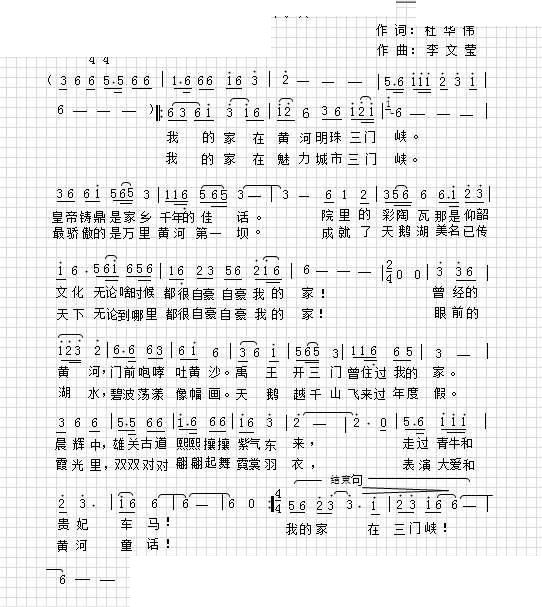 作词：杜华伟
作曲：李文莹
4 4
( 3 6 6 5·5 6 6 | 1·6 6 6 1 6 3 | 2 — — — | 5·6 1 1 1 2 3 1 |
6 — — — ) ‖: 6 3 6 1 3 1 6 | 1 2 6 3 6 1 2 1 | 6 — — — |
我 的 家 在 黄 河 明珠 三门 峡。
我 的 家 在 魅 力 城市 三门 峡。
3 6 6 1 5 6 5 3 | 1 1 6 5 6 5 3 — | 3 — 6 1 2 | 3 5 6 6 6·1 2 3 |
皇帝铸鼎是家乡 千年的 佳 话。 院 里 的 彩陶 瓦 那是 仰韶
最骄傲的是万里 黄河 第一 坝。 成 就 了 天鹅 湖 美名已传
1 6· 5 6 1 6 5 6 | 1 6 2 3 5 6 2 1 6 | 6 — — — | 2/4 0 0 | 3 3 6 |
文 化 无论啥时候 都很自豪 自豪 我 的 家！ 曾 经的
天 下 无论到哪里 都很自豪 自豪 我 的 家！ 眼 前的
1 2 3 2 | 6·6 6 3 | 6 1 6 | 3 6 1 | 5 6 5 3 | 1 1 6 6 5 | 3 — |
黄 河，门前 咆哮 吐黄 沙。禹 王 开三 门 曾住过 我的 家。
湖 水，碧波荡漾 像幅 画。天 鹅 越千 山 飞来过 年度 假。
3 6 6 | 5·5 6 6 | 1·6 6 6 | 1 6 3 | 2 — | 2· 0 | 5·6 1 1 1 |
晨 辉 中，雄关古道 熙熙 攘攘 紫气 东 来， 走过 青牛和
霞光 里，双双对对 翩翩起舞 霓裳 羽 衣， 表演 大爱和
结束句
2 3· | 1 6 6 | 6 — | 6 — | 6 0 :‖ 4/4 5 6 2 3 3· 1 | 2 3 1 6 6 — |
贵 妃 车 马！ 我的 家 在 三门峡！
黄 河 童 话！
6 — — |